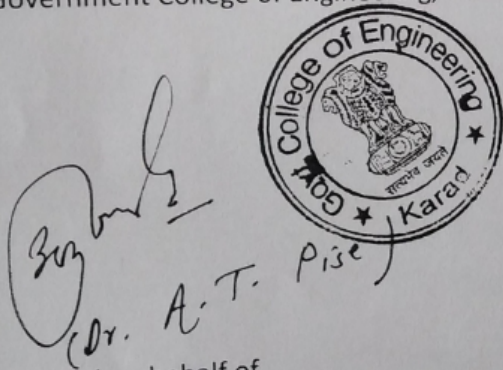 Government College of Engineering,
Govt College of Engineering
★ Karad ★
सत्यमेव जयते
(Dr. A. T. Pise)
behalf of